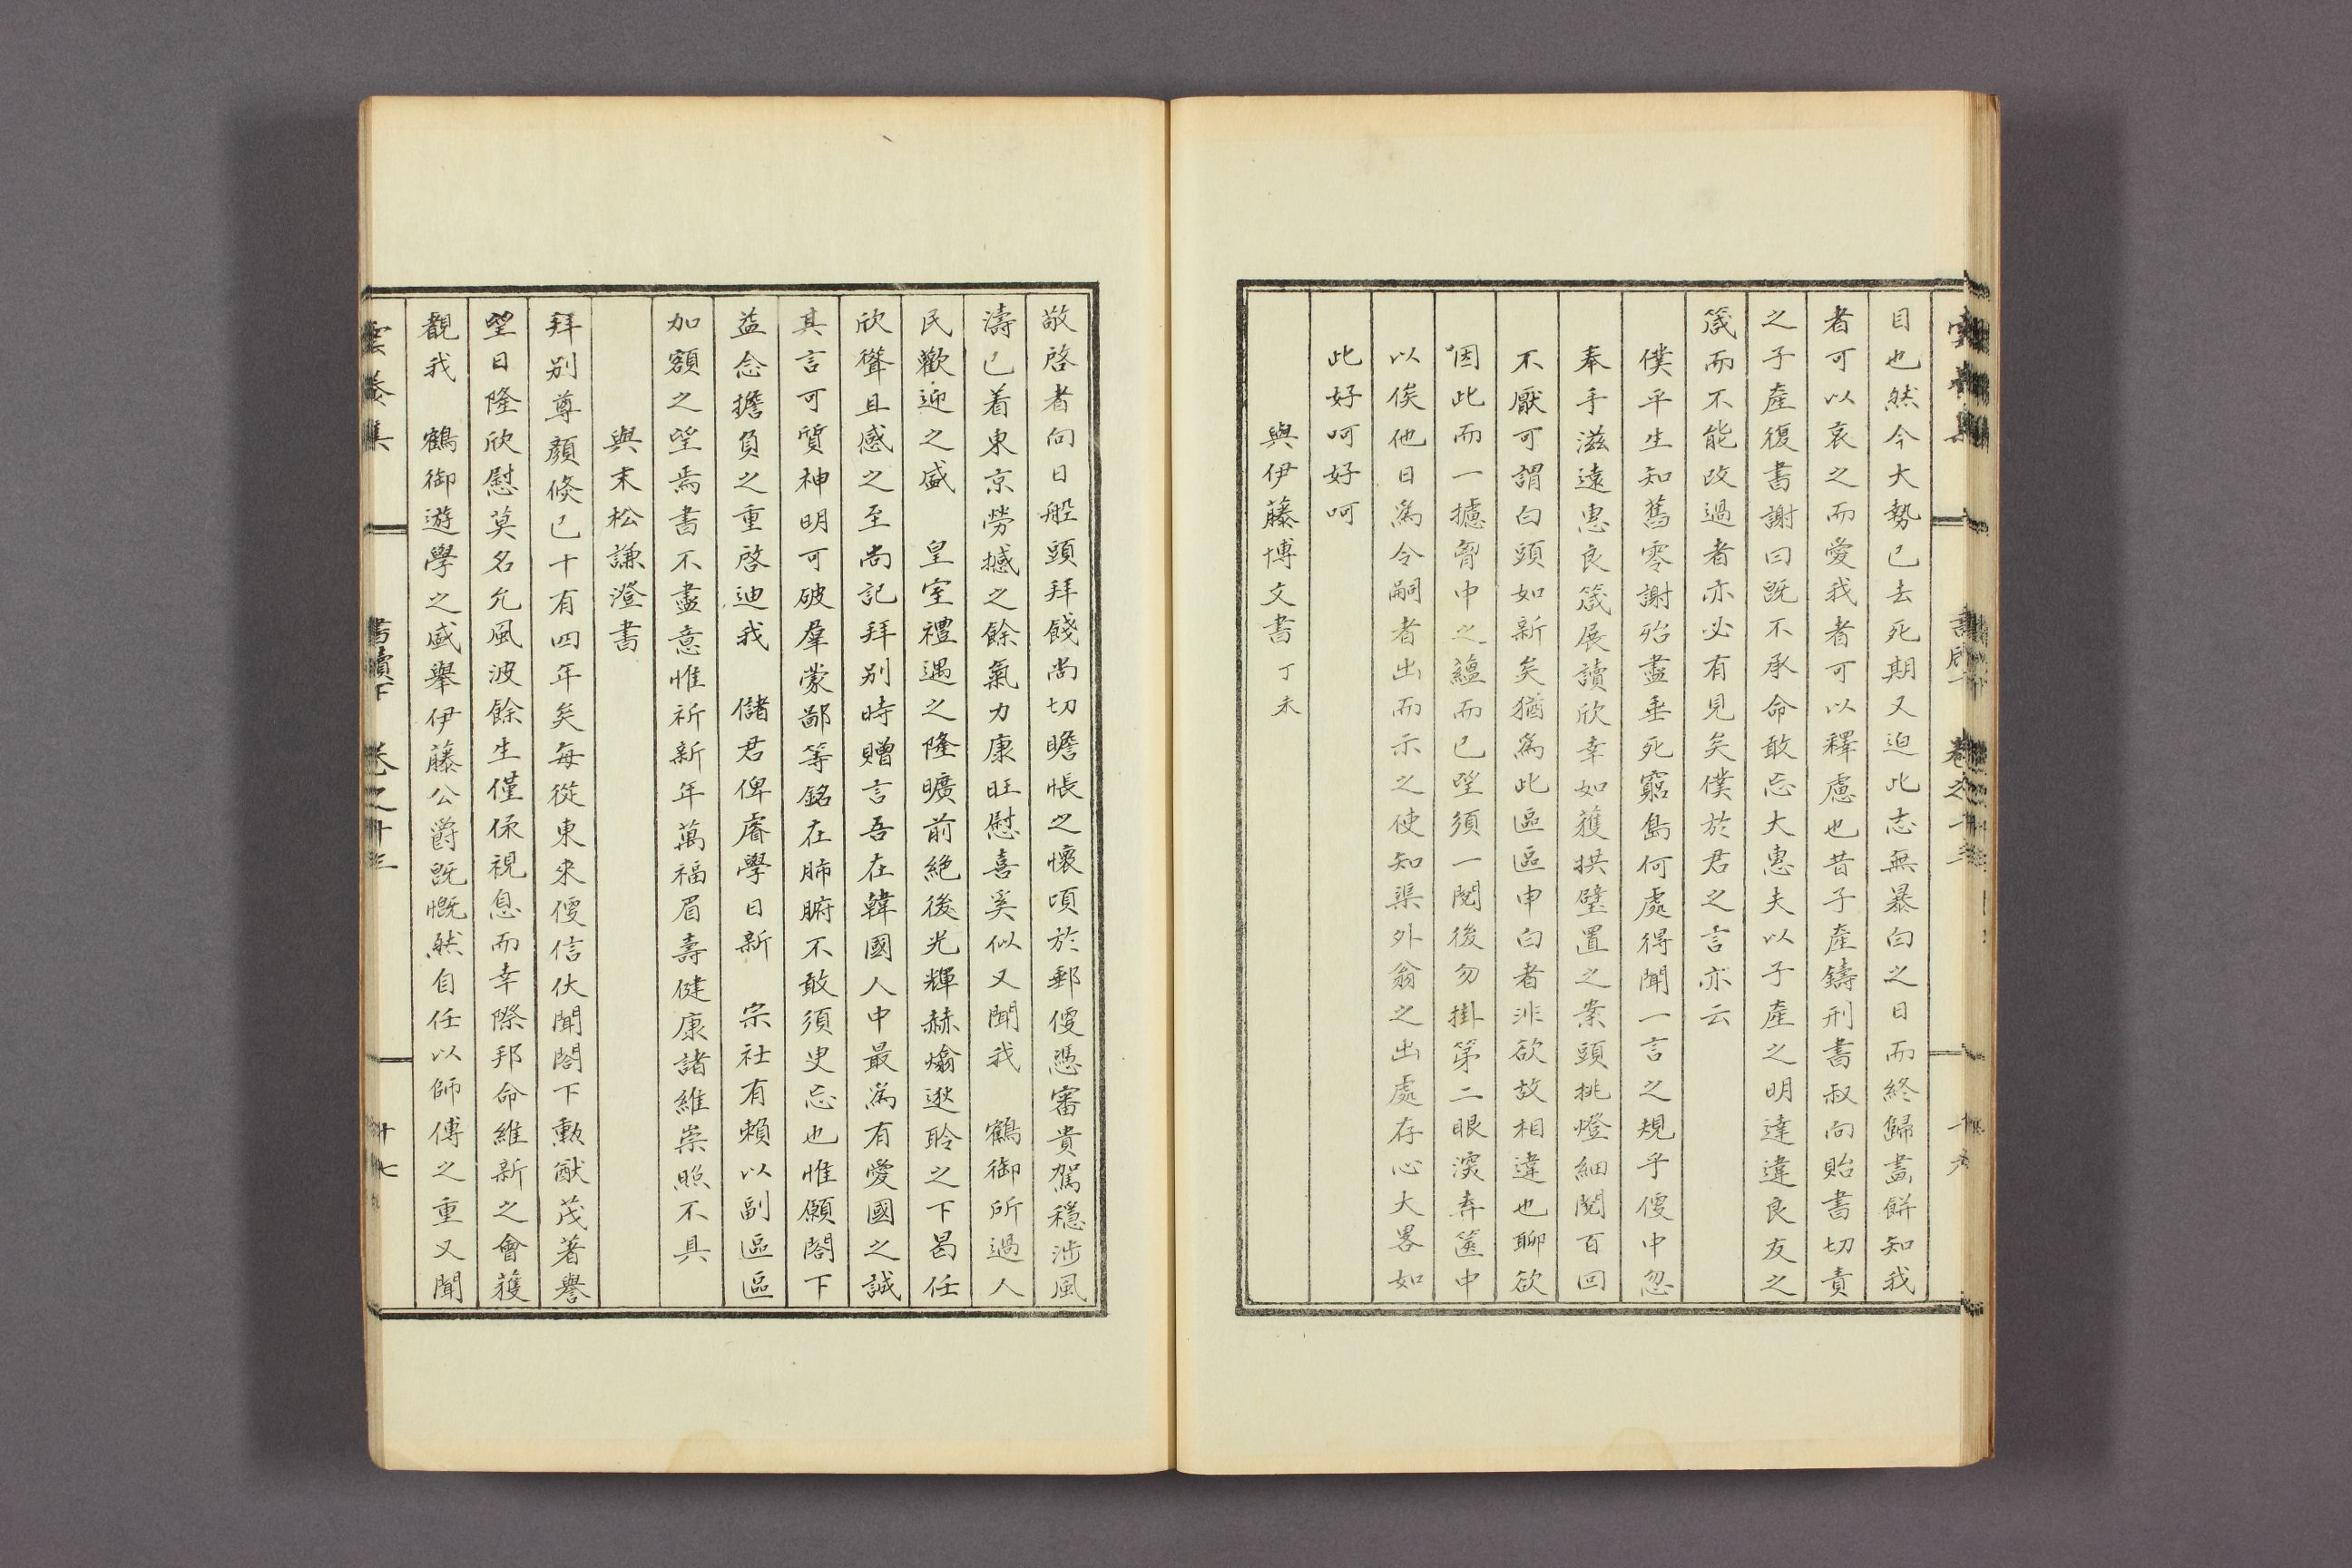 目也然今大勢已去死期又迫此志無暴白之日而終歸畵餠知我
者可以哀之而愛我者可以釋慮也昔子產鑄刑書叔向貽書切責
之子產復書謝曰既不承命敢忘大惠夫以子產之明達違良友之
箴而不能改過者亦必有見矣僕於君之言亦云
僕平生知舊零謝殆盡垂死窮島何處得聞一言之規乎便中忽
奉手滋遠惠良箴展讀欣幸如獲拱璧置之案頭挑燈細閱百回
不厭可謂白頭如新矣猶爲此區區申白者非欲故相違也聊欲
因此而一攄胷中之蘊而已望須一閱後勿掛第二眼深弆篋中
以俟他日爲令嗣者出而示之使知渠外翁之出處存心大畧如
此好呵好呵
與伊藤博文書 丁未
敬啓者向日船頭拜餞尚切瞻悵之懷頃於郵便憑審貴駕穩涉風
濤已着東京勞撼之餘氣力康旺慰喜奚似又聞我 鶴御所過人
民歡迎之盛 皇室禮遇之隆曠前絶後光輝赫爚逖聆之下曷任
欣聳且感之至尚記拜別時贈言吾在韓國人中最爲有愛國之誠
其言可質神明可破羣蒙鄙等銘在肺腑不敢須臾忘也惟願閤下
益念擔負之重啓迪我 儲君俾睿學日新 宗社有賴以副區區
加額之望焉書不盡意惟祈新年萬福眉壽健康諸維崇照不具
與末松謙澄書
拜別尊顏倐已十有四年矣每從東來便信伏聞閤下勲猷茂著譽
望日隆欣慰莫名允風波餘生僅保視息而幸際邦命維新之會獲
覩我 鶴御遊學之盛舉伊藤公爵既慨然自任以師傅之重又聞
雲養集 書牘下 卷之十三 十七